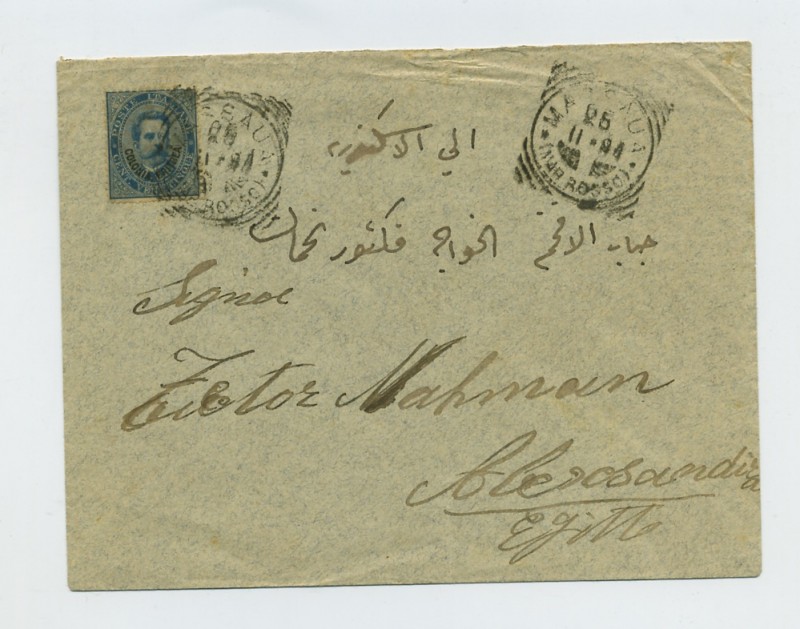 POSTE ITALIANE
COLONIA
MASSAUA
25
11-94
(MAR ROSSO)
MASSAUA
25
11-94
(MAR ROSSO)
الي الاسكندريه
جناب الافخم الخواجه فكتور نحمان
Signor
Victor Nahman
Alessandria
Egitto